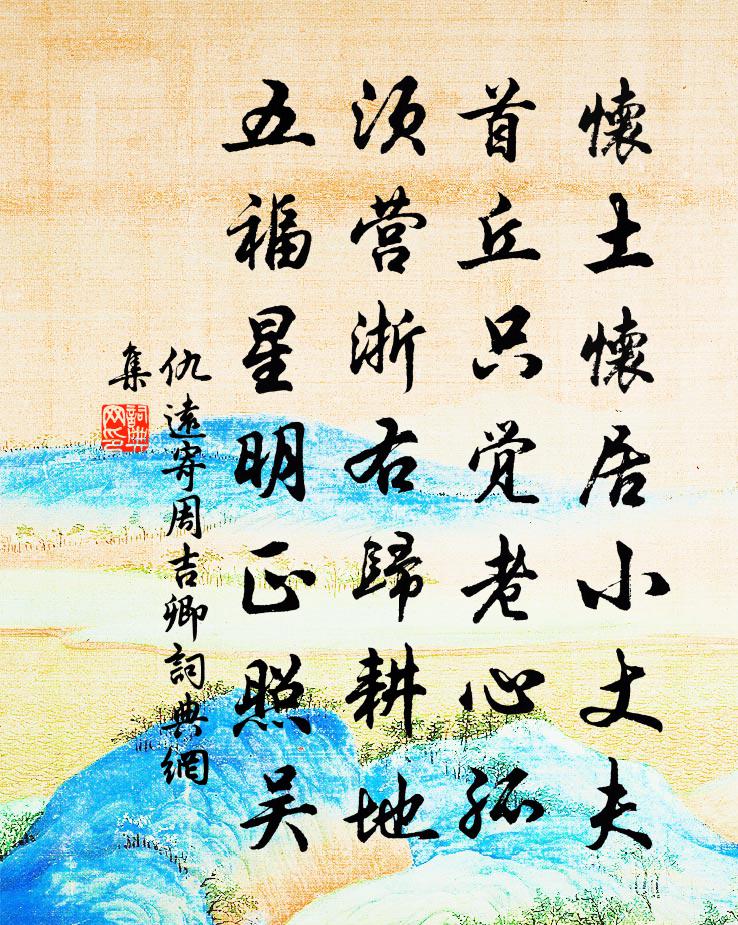 懷土懷居小丈夫
首丘只覺老心孤
須营浙右歸耕地
五福星明正照吴
仇遠寄周吉卿詞典網
集
詞典
网印